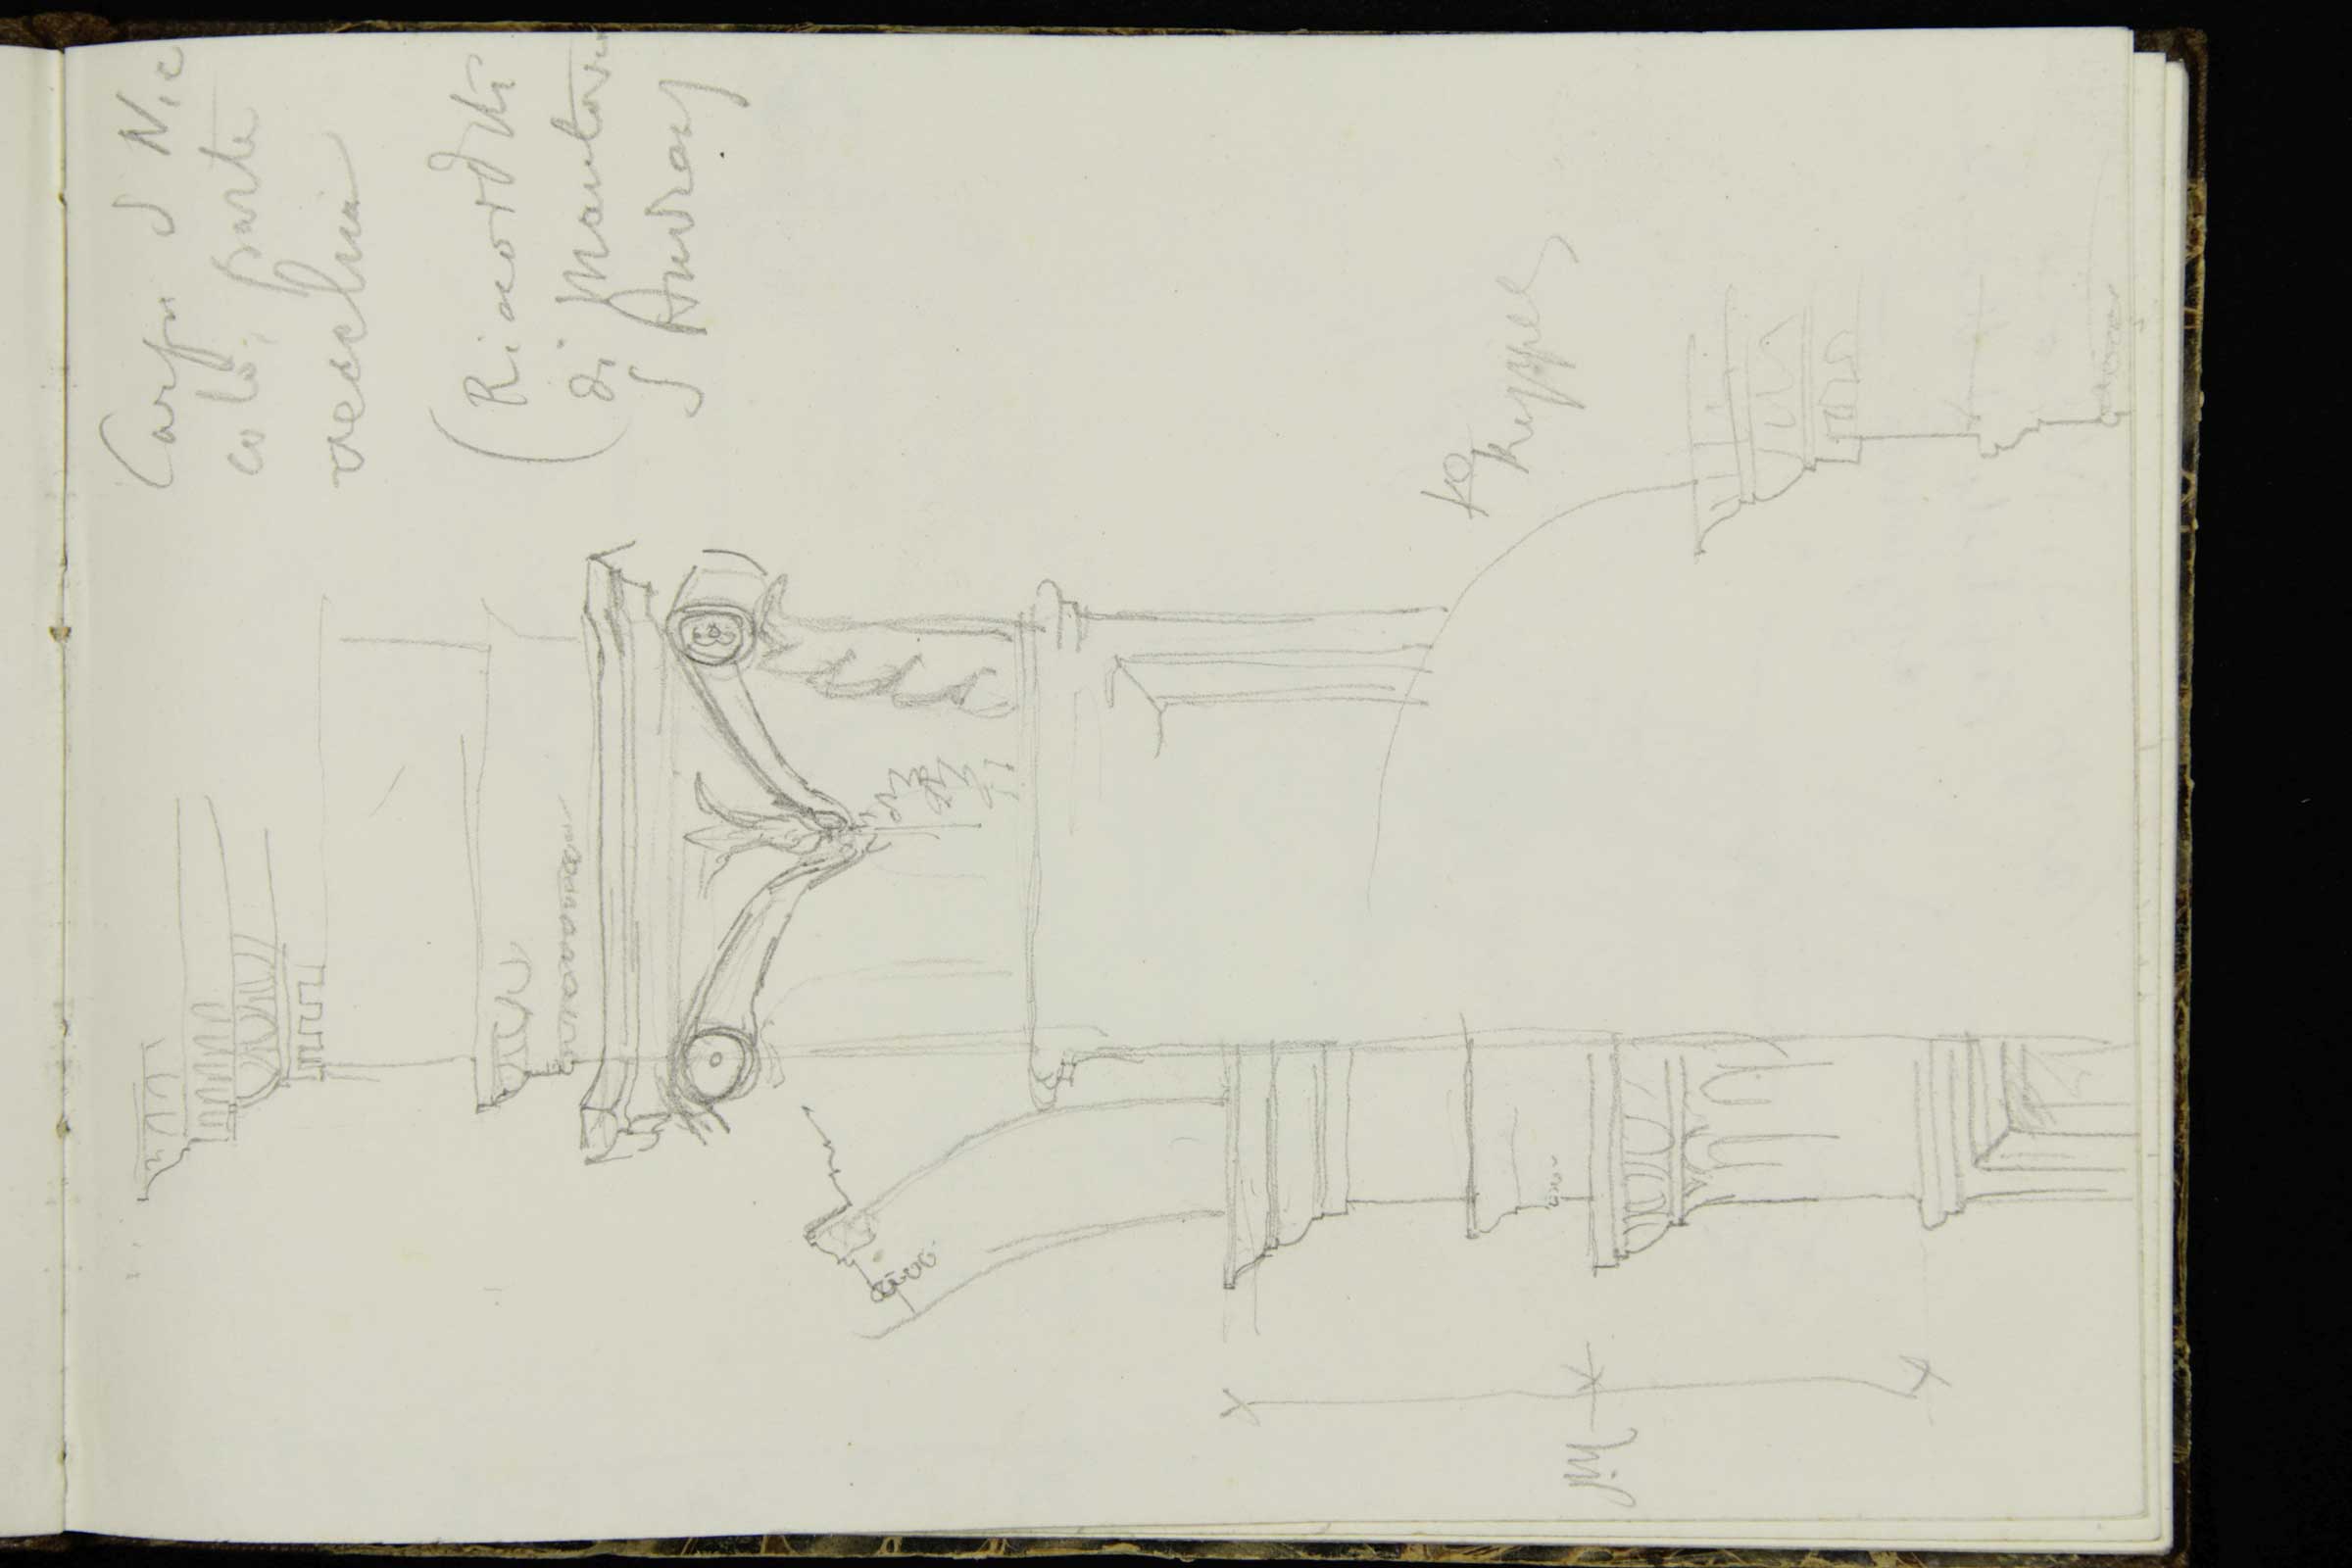 Carpi S Nic
colò, parte
vecchia
(Ricordi
di Mantova
S Andrea)
M